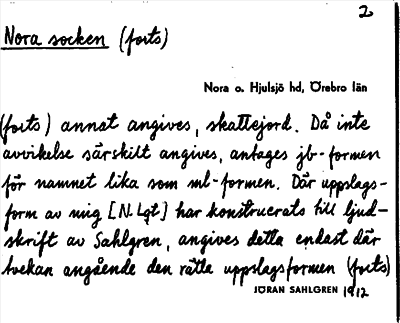 2
Nora socken (forts)
Nora o. Hjulsjö hd, Örebro län
(forts) annat angives, skattejord. Då inte
avvikelse särskilt angives, antages jb-formen
för namnet lika som ml-formen. Där uppslags-
form av mig [N. Lgt] har konstruerats till ljud-
skrift av Sahlgren, angives detta endast där
tvekan angående den rätta uppslagsformen (forts)
JÖRAN SAHLGREN 1912